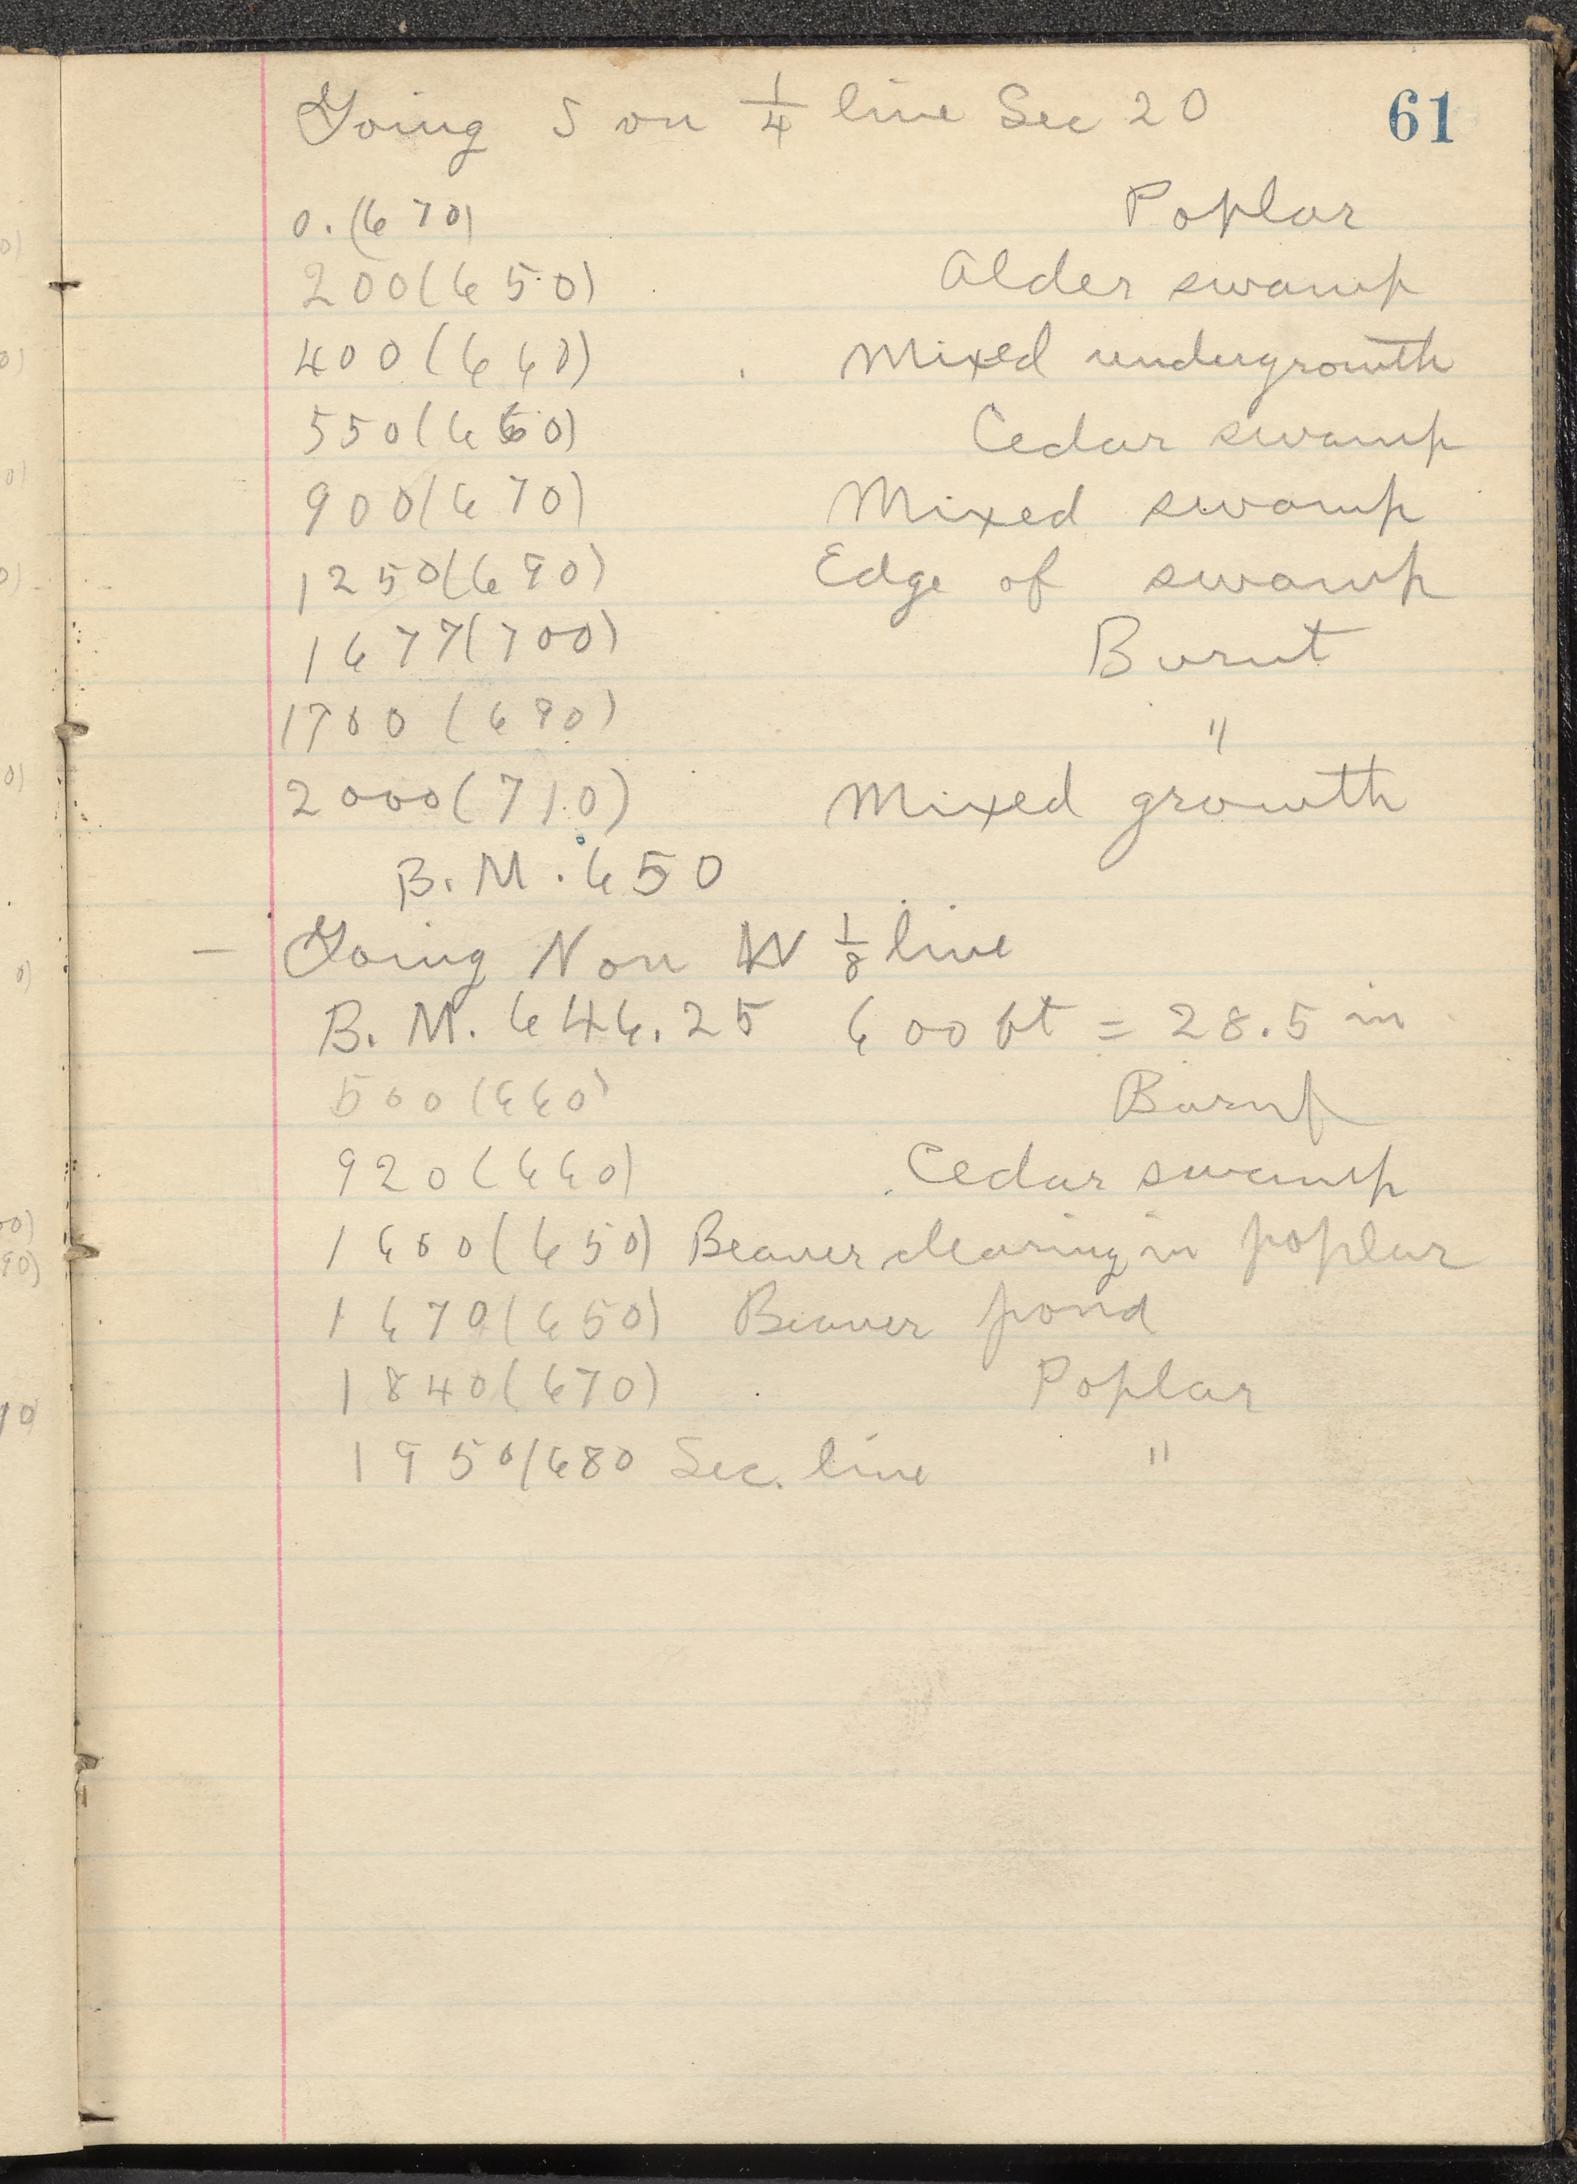 61
Going S on 1/4 line Sec 20
0. (670) Poplar
200 (650) Alder swamp
400 (660) Mixed undergrowth
550 (660) Cedar swamp
900 (670) Mixed swamp
1250 (690) Edge of swamp
1677 (700) Burnt
1700 (690) "
2000 (710) Mixed growth
B.M. 650
– Going N on W 1/8 line
B.M. 646.25 600 ft = 28.5 in
500 (660)
920 (660) Cedar swamp
1600 (650) Beaver clearing in poplar
1670 (650) Beaver pond
1840 (670) Poplar
1950 (680 Sec. line "